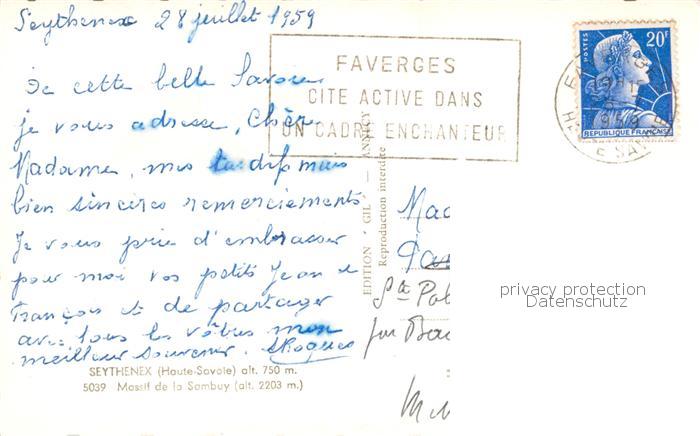 Seythenex 28 juillet 1959
De cette belle Savoie
je vous adresse, Chère
Madame, mes tardifs mais
bien sincères remerciements
Je vous prie d'embrasser
pour moi vos petits Jean et
François et de partager
avec tous les vôtres mon
meilleur souvenir. SRoques
SEYTHENEX (Haute-Savoie) alt. 750 m.
5039 Massif de la Sambuy (alt. 2203 m.)
FAVERGES
CITE ACTIVE DANS
UN CADRE ENCHANTEUR
POSTES
20F
REPUBLIQUE FRANÇAISE
1959
EDITION "GIL" — ANNECY
Reproduction interdite
Mad
Ste
privacy protection
Datenschutz